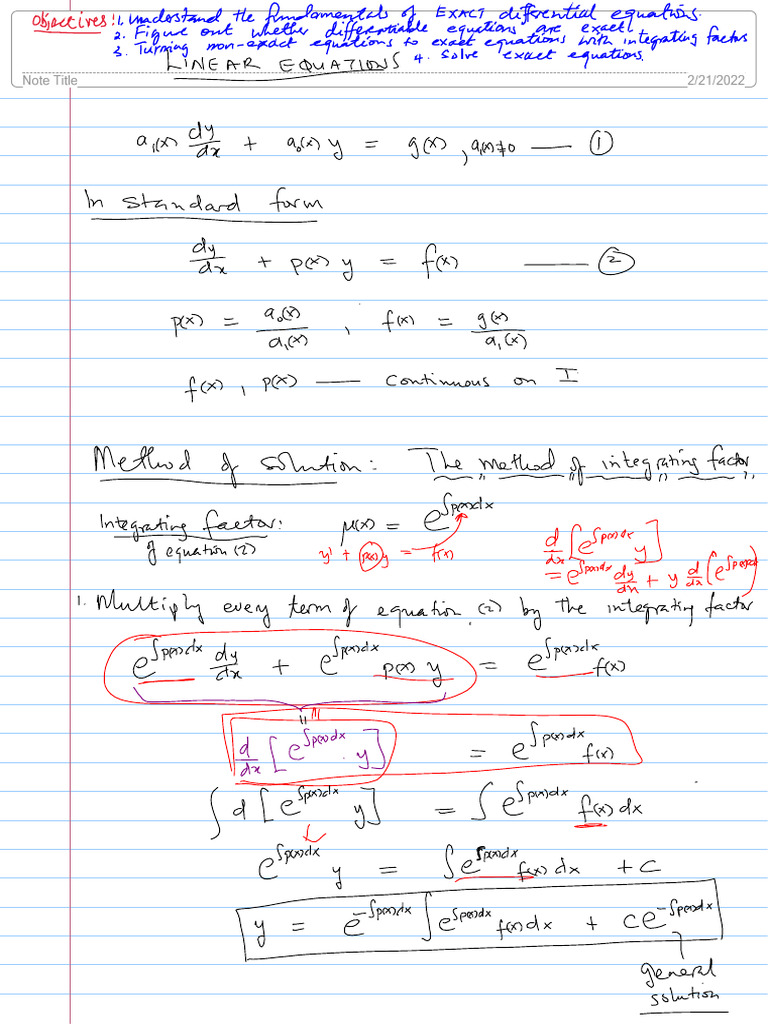 Objectives: 1. Understand the fundamentals of EXACT differential equations.
2. Figure out whether differentiable equations are exact.
3. Turning non-exact equations to exact equations with integrating factors
4. Solve exact equations.
LINEAR EQUATIONS
Note Title 2/21/2022
a₁(x) dy/dx + a₀(x) y = g(x), a₁(x)≠0 — ①
In standard form
dy/dx + p(x) y = f(x) — ②
p(x) = a₀(x)/a₁(x), f(x) = g(x)/a₁(x)
f(x), p(x) — continuous on I
Method of solution: The method of integrating factor
Integrating factor: μ(x) = e^∫p(x)dx
of equation (2)
y' + p(x)y = f(x)
d/dx [e^∫p(x)dx y]
= e^∫p(x)dx dy/dx + y d/dx (e^∫p(x)dx)
1. Multiply every term of equation (2) by the integrating factor
e^∫p(x)dx dy/dx + e^∫p(x)dx p(x) y = e^∫p(x)dx f(x)
d/dx [e^∫p(x)dx · y] = e^∫p(x)dx f(x)
∫ d [e^∫p(x)dx y] = ∫ e^∫p(x)dx f(x) dx
e^∫p(x)dx y = ∫ e^∫p(x)dx f(x) dx + C
y = e^-∫p(x)dx ∫ e^∫p(x)dx f(x) dx + ce^-∫p(x)dx
general
solution